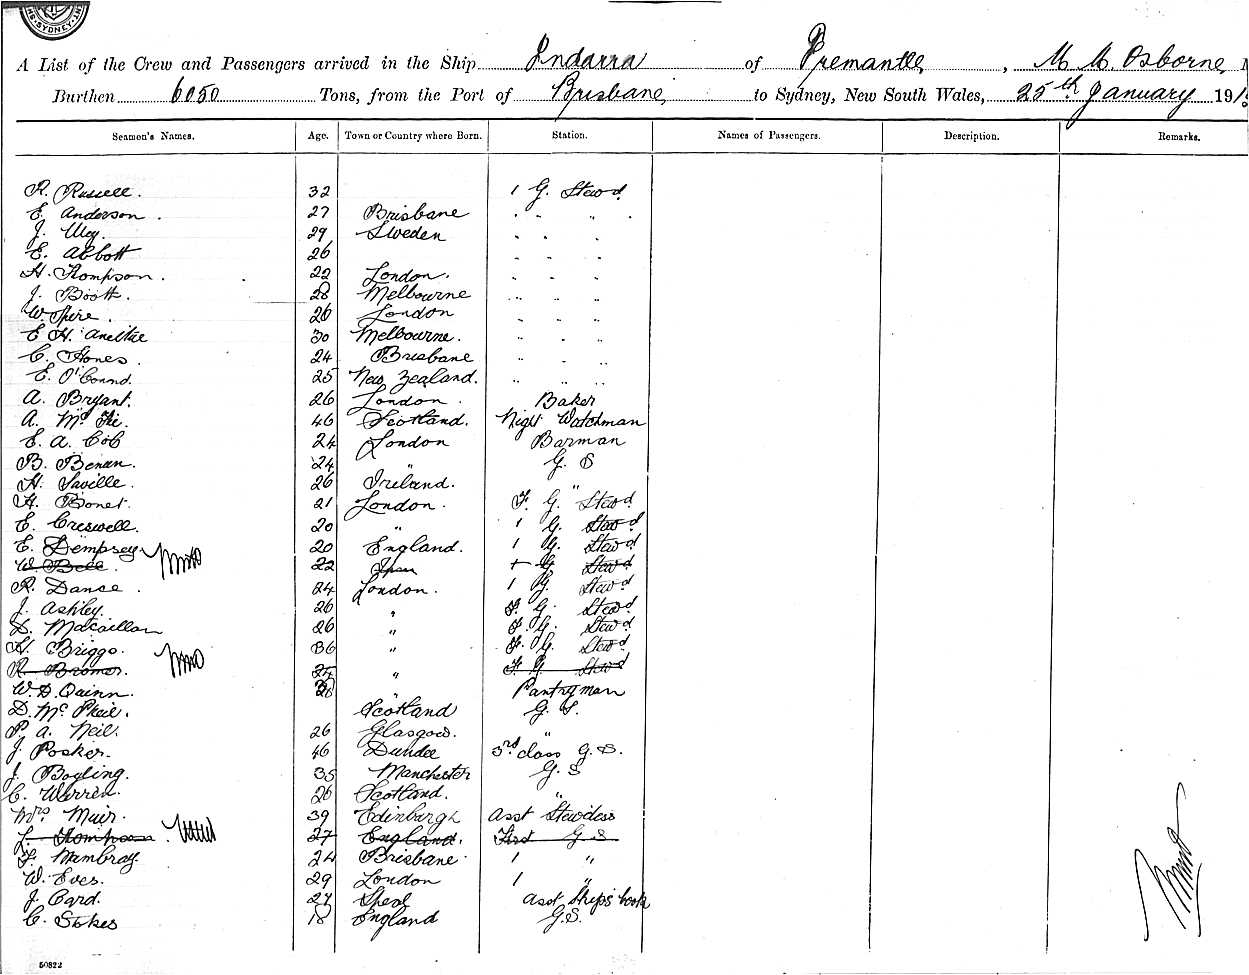 SYDNEY
A List of the Crew and Passengers arrived in the Ship Indarra of Fremantle, M. M. Osborne,
Burthen 6050 Tons, from the Port of Brisbane to Sydney, New South Wales, 25th January 191
Seamen's Names. Age. Town or Country where Born. Station. Names of Passengers. Description. Remarks.
R. Russell. 32 1 G. Stewd
E. Anderson. 27 Brisbane " " "
J. 29 Sweden " " "
E. Abbott 26 " " "
H. Thompson. 22 London. " " "
J. Booth. 28 Melbourne " " "
W. Spire. 26 London " " "
E H. 30 Melbourne. " " "
C. Hones. 24 Brisbane " " "
E. O'Connd. 25 New Zealand. " " "
A. Bryant. 26 London. Baker
A. Mc Fie. 46 Scotland. Night Watchman
E. A. Cob 24 London Barman
B. Benan. 24 " G. S
H. Saville. 26 Ireland. "
H. Bonet. 21 London. F. G. Stewd
E. Creswell. 20 " 1 G. Stewd
E. Dempsey 20 England. 1 G. Stewd
W. Bell. 22 G Stewd
R. Dance. 24 London. 1 G. Stewd
J. Ashley. 26 " F. G. Stewd
D. Macaillan 26 " F. G. Stewd
H. Briggs. 36 " F. G. Stewd
R. Bromer. 24 " F G Stewd
W. D. Quinn. " Pantryman
D. Mc Pheil. Scotland G. S.
P. A. Neil. 26 Glasgow. "
J. Posker. 46 Dundee 3rd class G. S.
J. Bogling. 35 Manchester G. S
C. Warren. 26 Scotland. "
Mrs Muir. 39 Edinburgh Asst Stewdess
L. Thompson 27 England. First G S
F. Mambray. 24 Brisbane. 1 "
W. Eves. 29 London 1 "
J. Card. 27 Asst Ships Cook
C. Stokes 18 England G.S.
50822